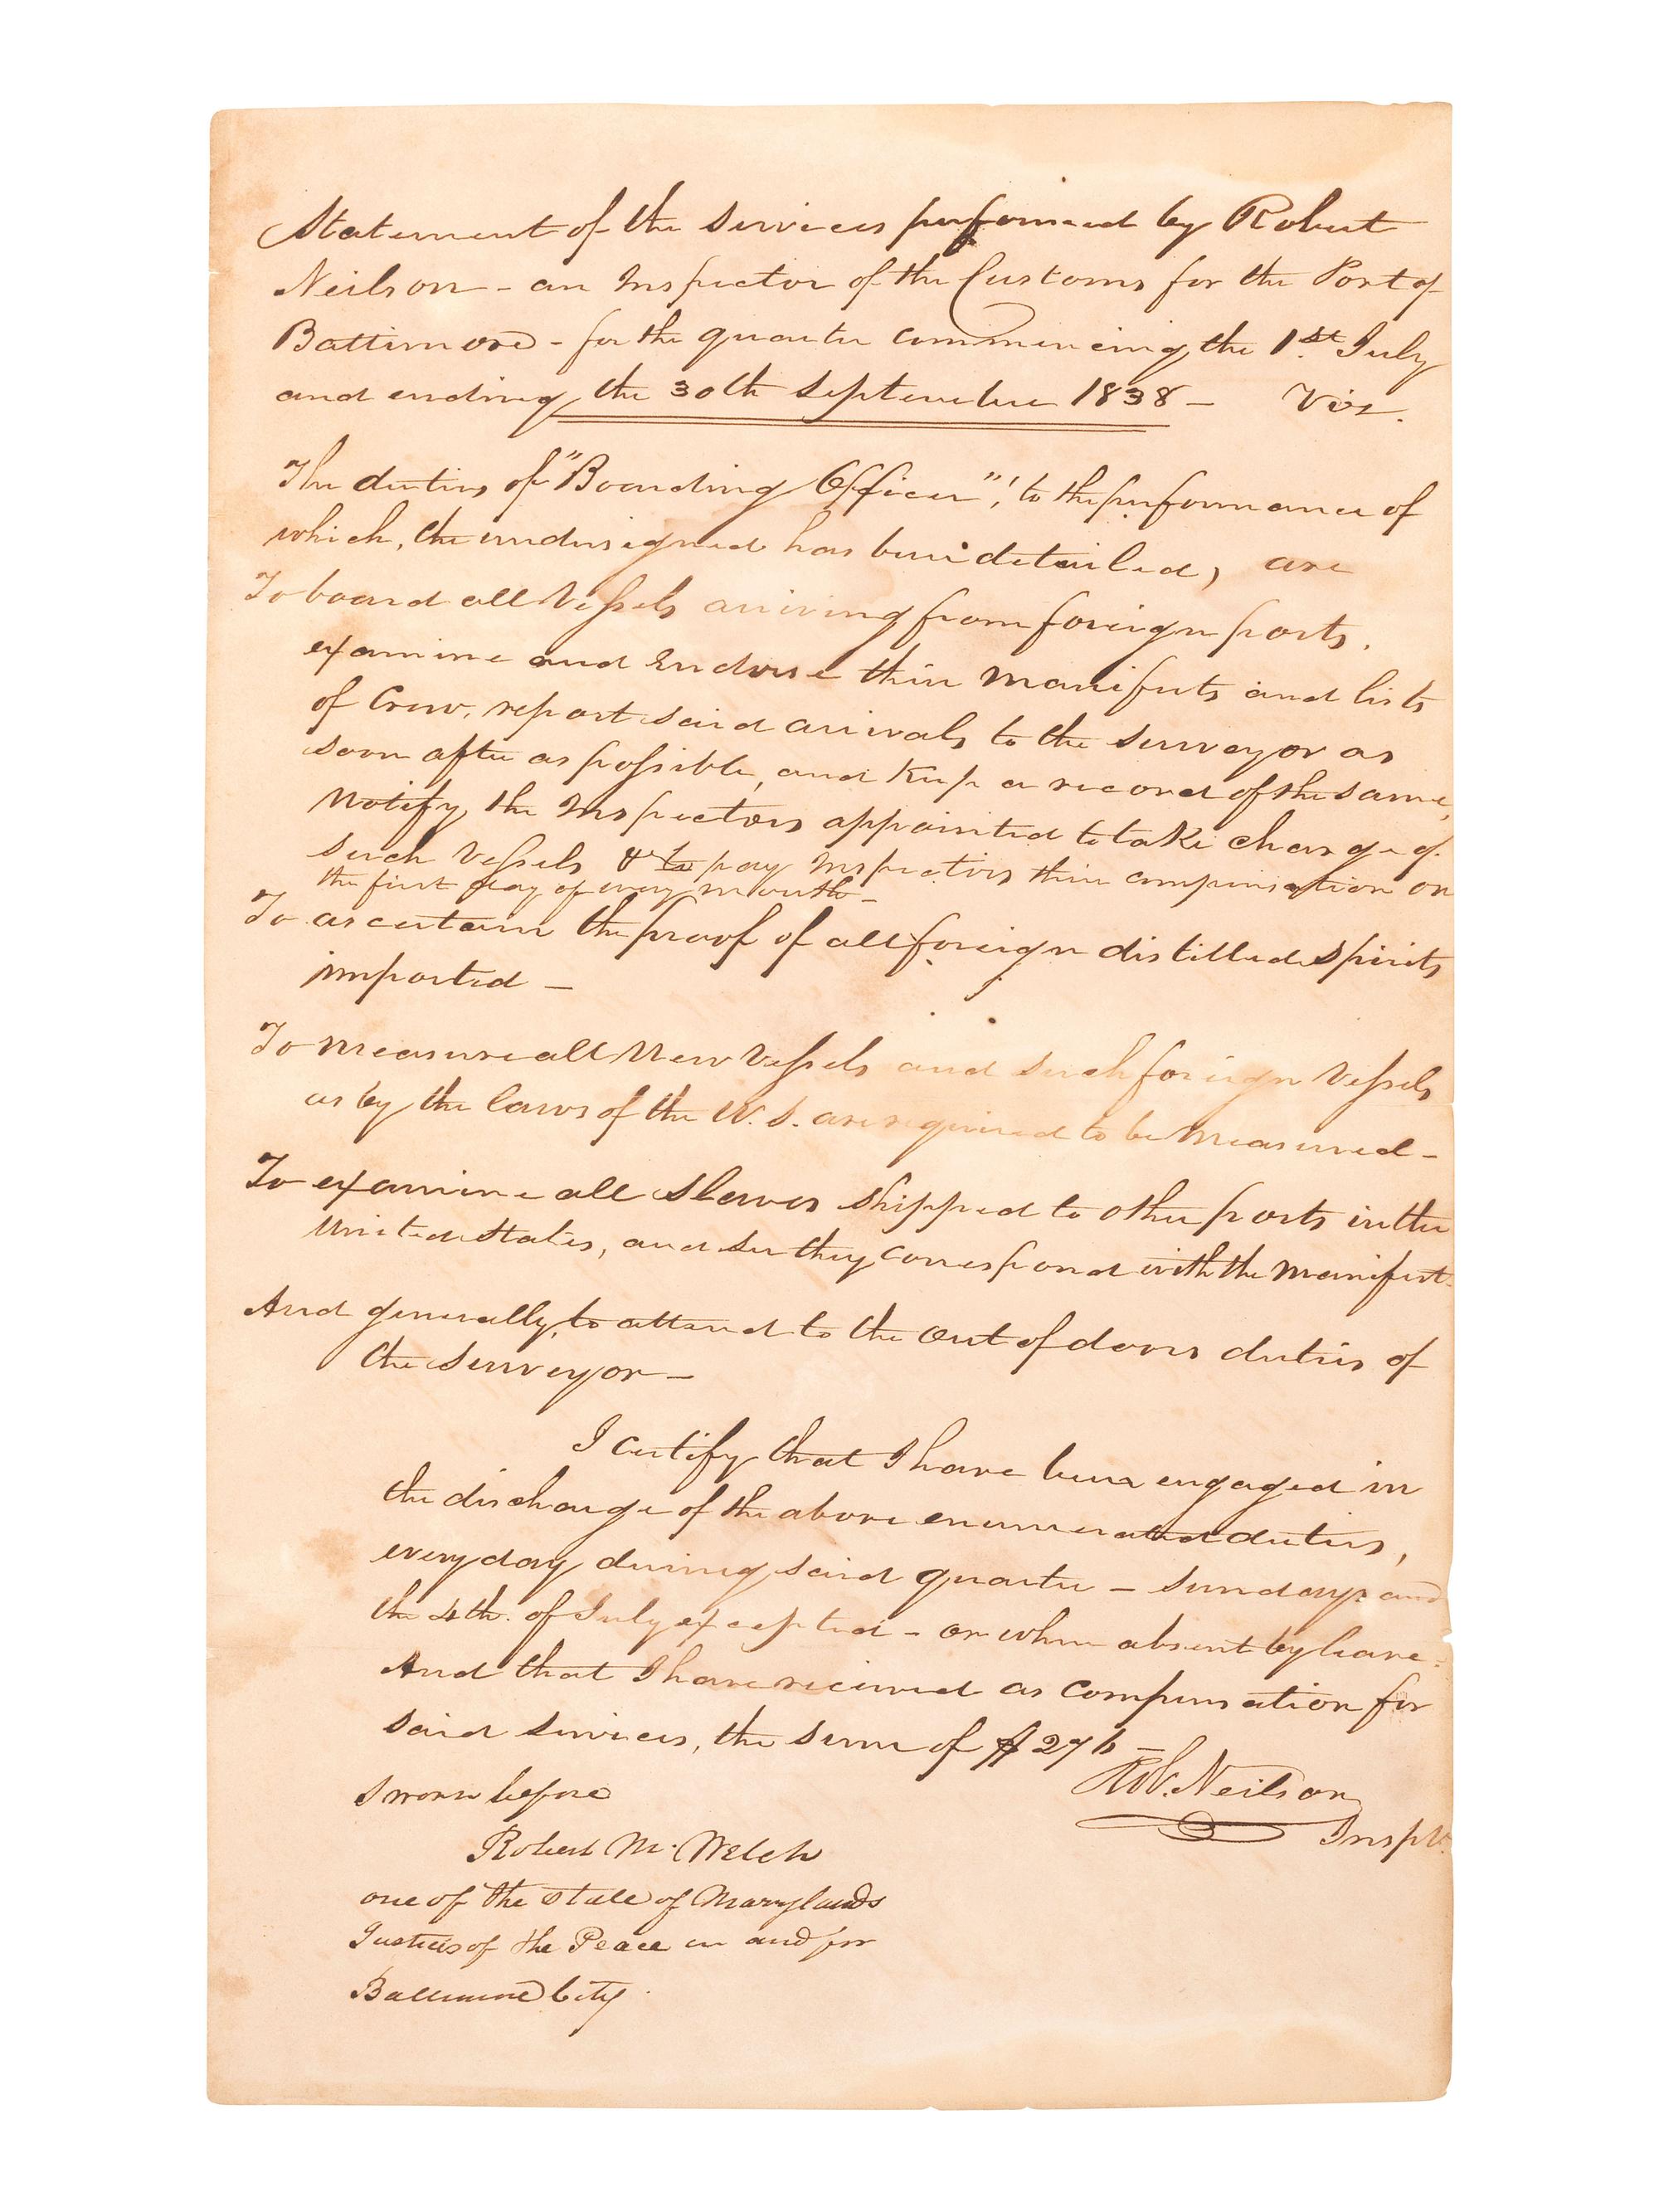 Statement of the services performed by Robert
Neilson - an Inspector of the Customs for the Port of
Baltimore - for the quarter commencing the 1st July
and ending the 30th September 1838 - Viz.
The duties of "Boarding Officer", to the performance of
which, the undersigned has been detailed, are
To board all Vessels arriving from foreign ports,
examine and Endorse their Manifests and lists
of Crew, report said arrivals to the surveyor as
soon after as possible, and Keep a record of the same,
Notify the Inspectors appointed to take charge of
such Vessels & to pay Inspectors their compensation on
the first day of every month -
To ascertain the proof of all foreign distilled spirits
imported -
To measure all New Vessels and such foreign Vessels
as by the laws of the U.S. are required to be Measured -
To examine all slaves shipped to other ports in the
United States, and see they correspond with the Manifest -
And generally, to attend to the out of doors duties of
the surveyor -
I certify that I have been engaged in
the discharge of the above enumerated duties,
every day during said quarter - sundays and
the 4th. of July excepted - or when absent by leave -
And that I have received as compensation for
said services, the sum of $276 -
Rob. Neilson
Inspr.
Sworn before
Robert M. Welch
one of the State of Marylands
Justices of the Peace in and for
Baltimore City.